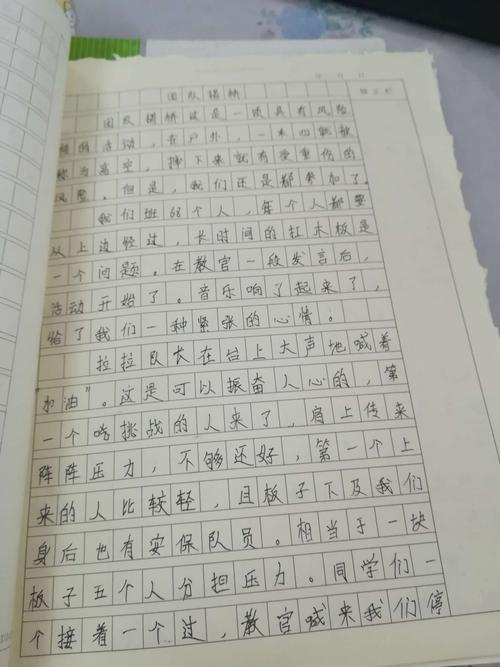 年 月 日
团队搭桥
团队搭桥这是一项具有风险
性的活动，在户外，一米四就被
称为高空，摔下来就有受重伤的
风险。但是，我们还是都参加了。
我们班68个人，每个人都要
从上边经过，长时间的扛木板是
一个问题。在教官一段发言后，
活动开始了。音乐响了起来了，
给了我们一种紧张的心情。
拉拉队长在台上大声地喊着
“加油”。这是可以振奋人心的，第
一个吃挑战的人来了，肩上传来
阵阵压力，不够还好，第一个上
来的人比较轻，且板子下及我们
身后也有安保队员。相当于一块
板子五个人分担压力。同学们一
个接着一个过，教官喊来我们停